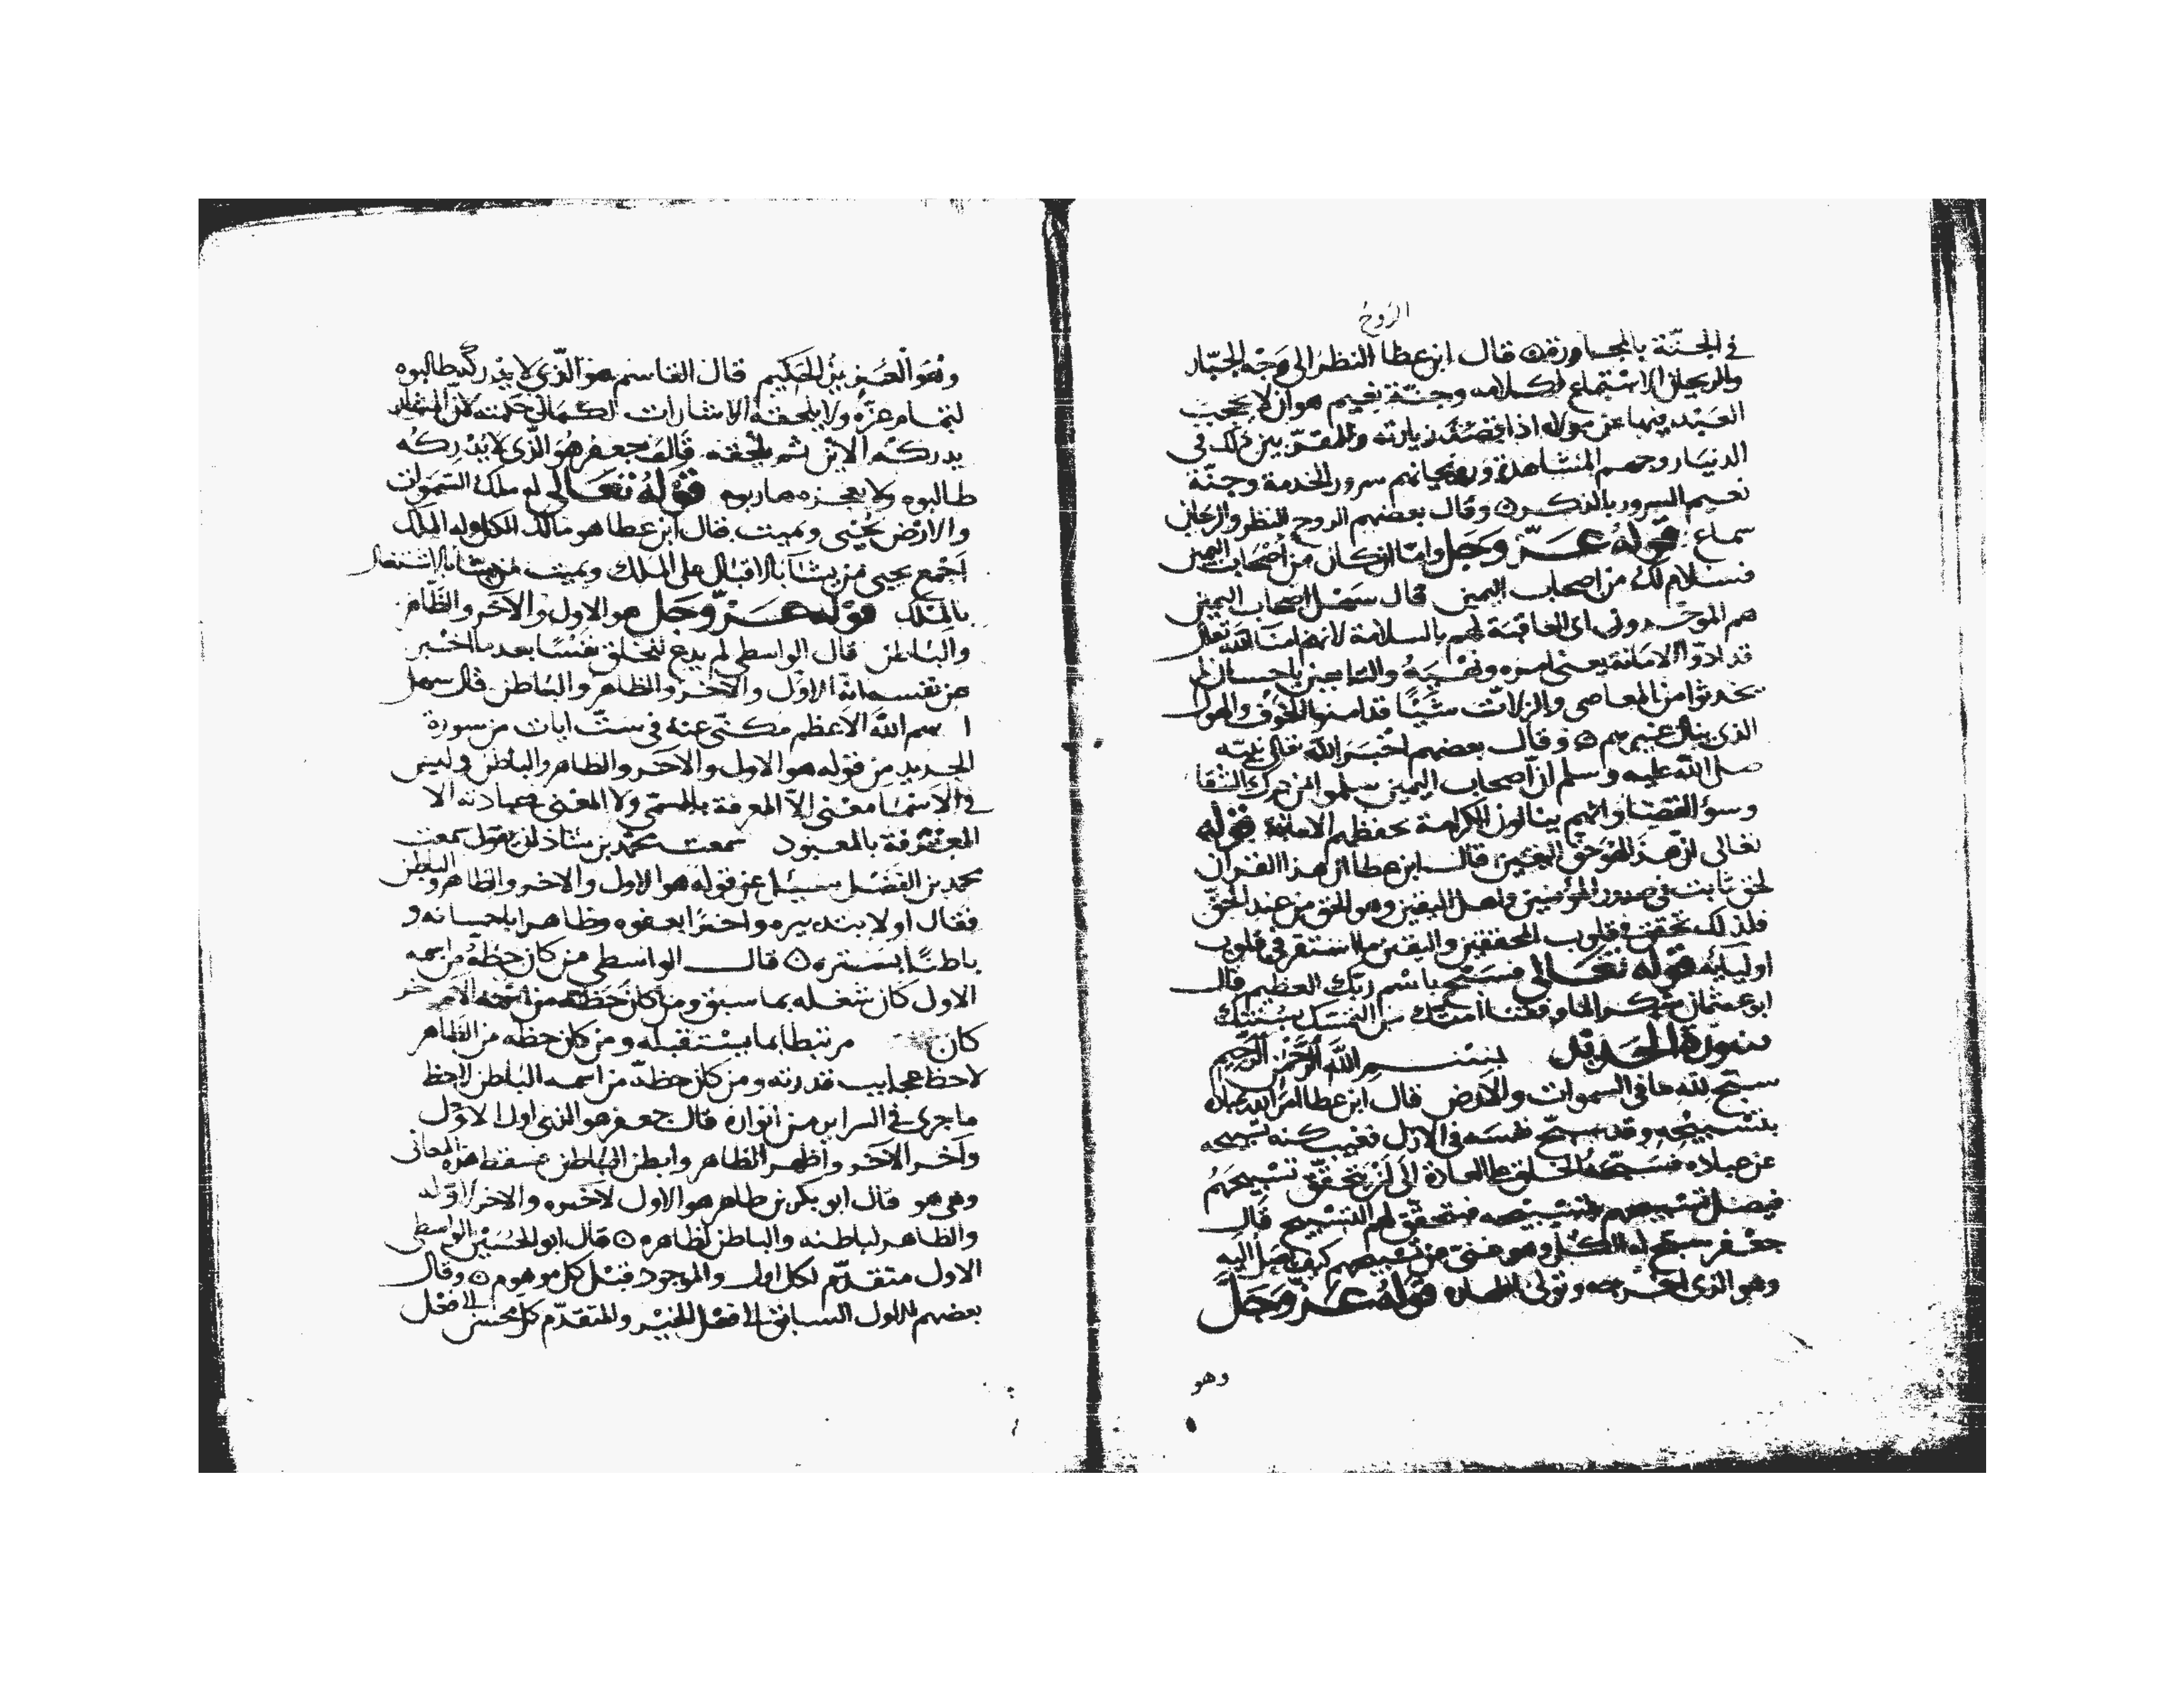 الروح
في الجنة بالمجاورة ۞ قال ابن عطا النظر الى وجه الجبّار
والريحان الاستماع لكلامه وجنّة نعيم هو ان لا يحجب
العبد فيها عن مولاه اذا قصد زيارته وللمقرّبين ذلك في
الدنيا روحهم المشاهدة وريحانهم سرور الخدمة وجنّة
نعيم السرور بالذكر ۞ وقال بعضهم الروح النظر والريحان
سماع قوله عزّ وجل واما ان كان من اصحاب اليمين
فسلام لك من اصحاب اليمين قال سهل اصحاب اليمين
هم الموحّدون اى العاقبة لهم بالسلامة لانهم امنا الله تعالى
قد ادّوا الامانة يعنى امره ونهيه والتابعين باحسان لم
يحدثوا من المعاصى والزلات شيئًا قد امنوا الخوف والهول
الذى ينال غيرهم ۞ وقال بعضهم اخبر الله تعالى نبيّه
صلى الله عليه وسلم ان اصحاب اليمين سلموا من درك الشقا
وسوء القضا وانهم ينالون الكرامة بحفظهم الامانة قوله
تعالى ان هذا لهو حق اليقين قال ابن عطا ان هذا القران
لحق ثابت في صدور المؤمنين واهل اليقين وهو الحق من عند الحقّ
فلذلك تحقق في قلوب المحققين واليقين ما استقر في قلوب
اوليائه قوله تعالى فسبّح باسم ربّك العظيم قال
ابو عثمان شكرا لما وفقنا امتك من التمسك بسنتك
سورة الحديد بسم الله الرحمن الرحيم
سبّح لله ما في السموات والارض قال ابن عطا امر الله عباده
بتسبيحه وقد سبّح نفسه في الازل فغيب كنه تسبيحه
عن عباده فسبّحه الخلق على العادة الى ان يتحقّق تسبيحهم
فيصل تسبيحهم بتسبيحه فتحقّق لهم التسبيح قال
جعفر سبّح له الكلّ وهو غنىّ عن تسبيحهم كيف يصل اليه
وهو الذى اخرجه وتولى اظهاره قوله عزّ وجلّ
وهو
وهو العزيز الحكيم قال القاسم هو الّذى لا يدركه طالبوه
لتمام عزّه ولا يلحقه الاشارات لكمال حكمته لان المشار
يدركه الاين ثم يلحقه قال جعفر هو الّذى لا يدركه
طالبوه ولا يعجزه هاربوه قوله تعالى له ملك السموات
والارض يحيى ويميت قال ابن عطا هو مالك الكل وله الملك
اجمع يحيى من يشا بالاقبال على الملك ويميت من يشا بالاشتغال
بالملك قوله عزّ وجل هو الاول والآخر والظّاهر
والباطن قال الواسطي لم يدع للخلق نفسًا بعد ما اخبر
عن نفسه انه الاوّل والآخر والظاهر والباطن قال سهل
اسم الله الاعظم مكنّى عنه في ستّ ايات من سورة
الحديد من قوله هو الاول والآخر والظاهر والباطن وليس
في الاسما معنى الاّ المعرفة بالمسمّى ولا المعنى في عبادته الا
المعرفة بالمعبود سمعت محمد بن شاذان يقول سمعت
محمد بن الفضل سئل عن قوله هو الاول والاخر والظاهر والباطن
فقال اولا بتدبيره واخرًا بعفوه وظاهرا باحسانه و
باطنًا بستره ۞ قال الواسطي من كان حظّه من اسمه
الاول كان شغله بما سبق ومن كان حظّه من اسمه الآخر
كان مرتبطا بما يستقبله ومن كان حظّه من الظاهر
لاحظ عجايب قدرته ومن كان حظّه من اسمه الباطن لاحظ
ما جرى في السراير من انواره قال جعفر هو الذى اول الاوّل
وآخر الآخر واظهر الظاهر وابطن الباطن فسقط هذه المعانى
وهى هو قال ابو بكر بن طاهر هو الاول لآخره والاخر لاوّله
والظاهر لباطنه والباطن لظاهره ۞ قال ابو الحسين الواسطي
الاول متقدّم لكل اول والموجود قبل كل موهوم ۞ وقال
بعضهم للاول السابق الى فعل الخير والمتقدّم كل محسن الى فعل